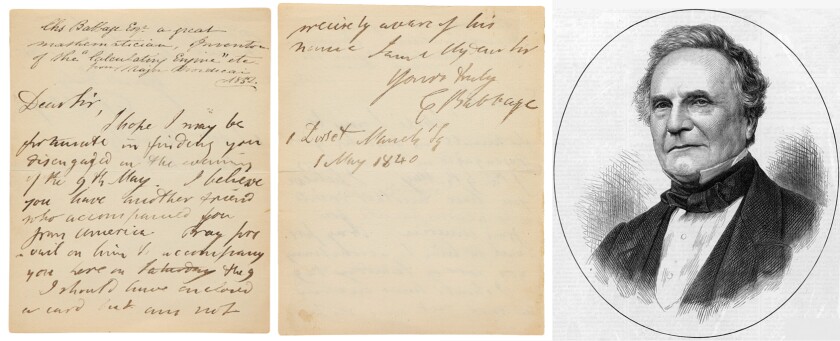 Chs Babbage Esqr a great
mathematician, Inventor
of the "Calculating Engine" etc
from
1852.
Dear Sir,
I hope I may be
fortunate in finding you
disengaged on the evening
of the 9th May. I believe
you have another friend
who accompanied you
from America Pray pre
vail on him to accompany
you here on Saturday the 9
I should have enclosed
a card but am not
precisely aware of his
name I am My dear Sir
Yours truly
C Babbage
1 Dorset March Sq
1 May 1840